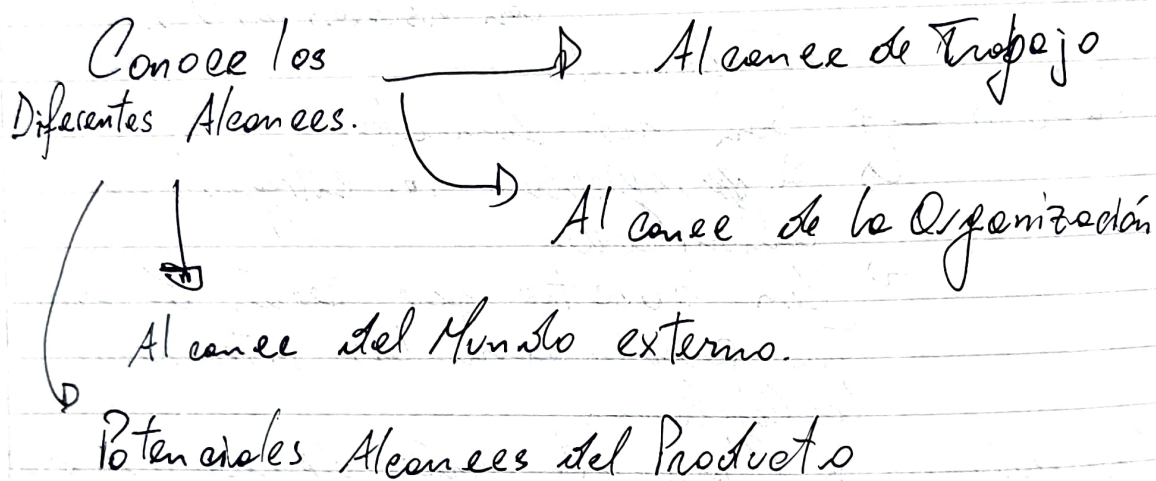 Conoce los
Diferentes Alcances.
Alcance de Trabajo
Alcance de la Organización
Alcance del Mundo externo.
Potenciales Alcances del Producto